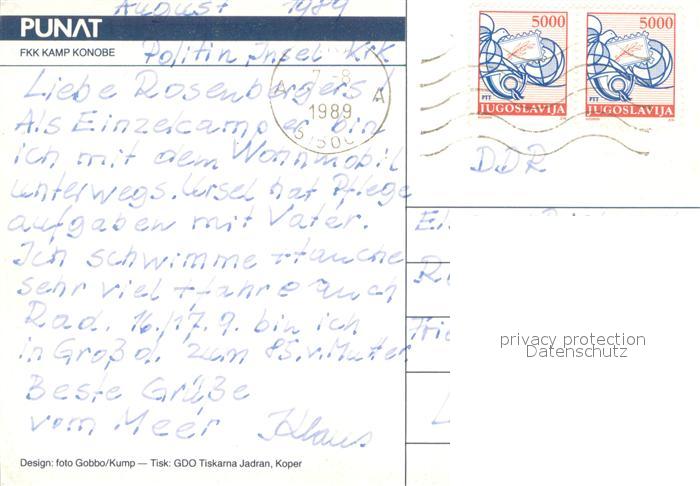 August 1989
PUNAT
FKK KAMP KONOBE
Politin Insel Krk
Liebe Rosenbergers!
Als Einzelcamper bin
ich mit dem Wohnmobil
unterwegs. Ursel hat Pflege
aufgaben mit Vater.
Ich schwimme + tauche
sehr viel + fahre auch
Rad. 16./17.9. bin ich
in Großd. zum 85. v. Mutter
Beste Grüße
vom Meer Klaus
Design: foto Gobbo/Kump — Tisk: GDO Tiskarna Jadran, Koper
7-8
A A
1989
5000
PTT
JUGOSLAVIJA
5000
PTT
JUGOSLAVIJA
DDR
privacy protection
Datenschutz